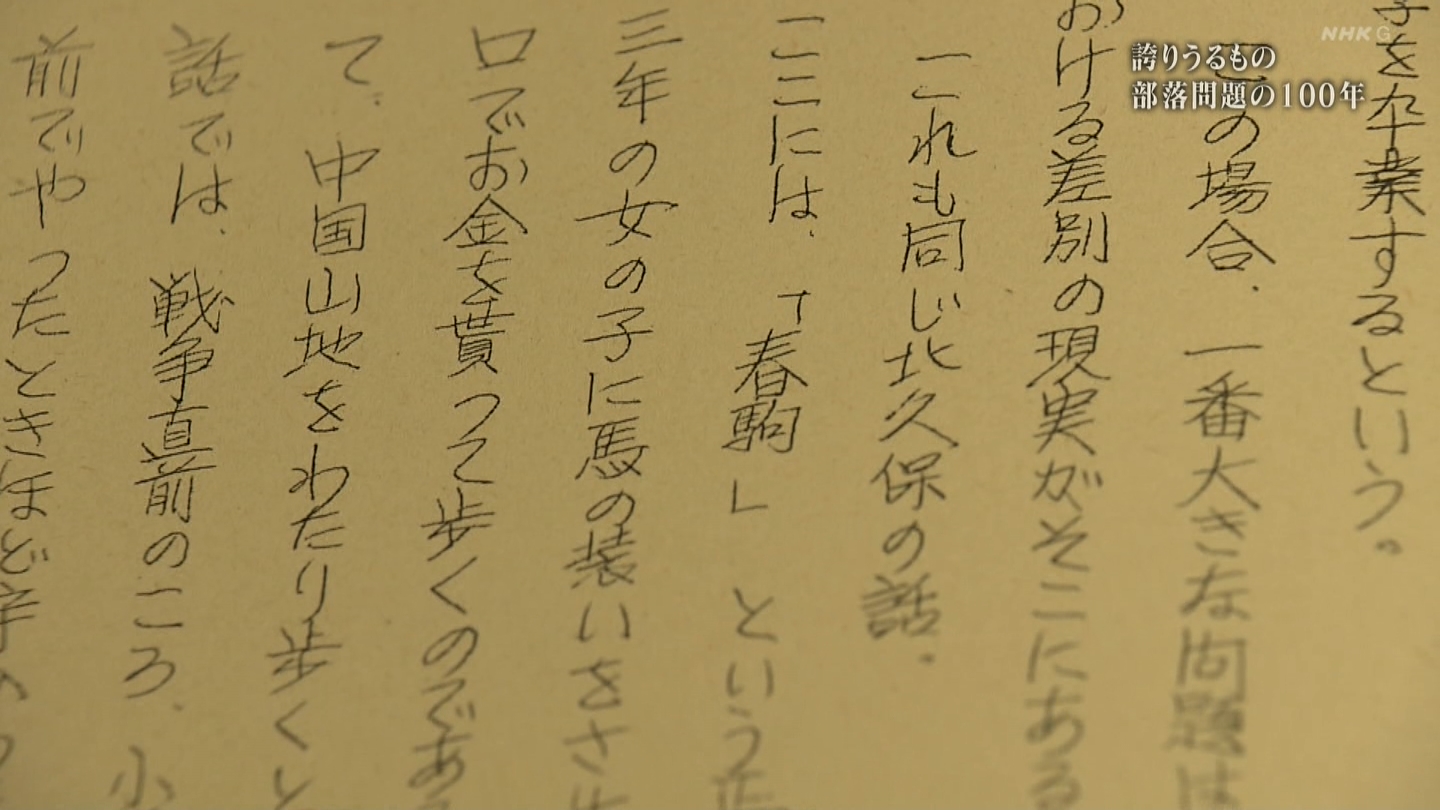 NHK G
誇りうるもの
部落問題の100年
を卒業するという。
の場合、一番大きな問題は
おける差別の現実がそこにある
一これも同じ北久保の話、
ここには、「春駒」という
三年の女の子に馬の装いをさ
口でお金を貰って歩くのであ
て、中国山地をわたり歩くと
話では、戦争直前のころ、小
前でやったときほど辛